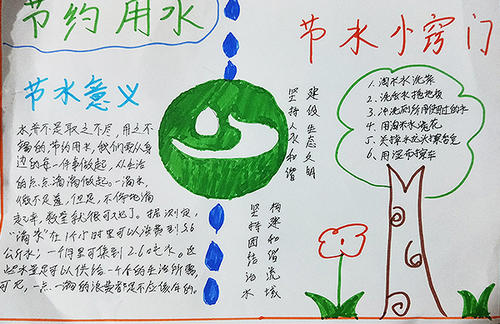 节约用水
节水小窍门
节水意义
水并不是取之不尽,用之不
竭的节约用水,我们要从身
边的每一件事做起,从生活
的点点滴滴做起。一滴水,
微不足道,但是,不停地滴
起来,数量就很可观了。据测定,
“滴水”在1个小时里可以浪费到3.6
公斤水;一个月里可集到2.6吨水。这
些水量足可以供给一个人的生活所需,
可见,一点一滴的浪费都是不应该有的。
建设生态文明
坚持人水和谐
构建和谐流域
坚持团结治水
1. 淘米水洗菜
2. 洗脸水拖地板
3. 冲洗厕所用使用过的水
4. 用淘米水浇花
5. 关掉水龙头擦香皂
6. 用湿布擦车